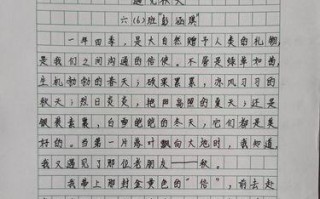 遇见秋天
六(6)班 彭涵琪
一年四季，是大自然赠予人类的礼物，
是我们之间沟通的信使。不管是绿草如茵，
生机勃勃的春天；硕果累累，凉风习习的
秋天；烈日炎炎，艳阳高照的夏天；还是
银装素裹，白雪皑皑的冬天，它们都是美
好的。当第一片落叶飘向大地时，我知道
我又遇见了那位老朋友——秋。
我带上那封金黄色的“信”，前去赴